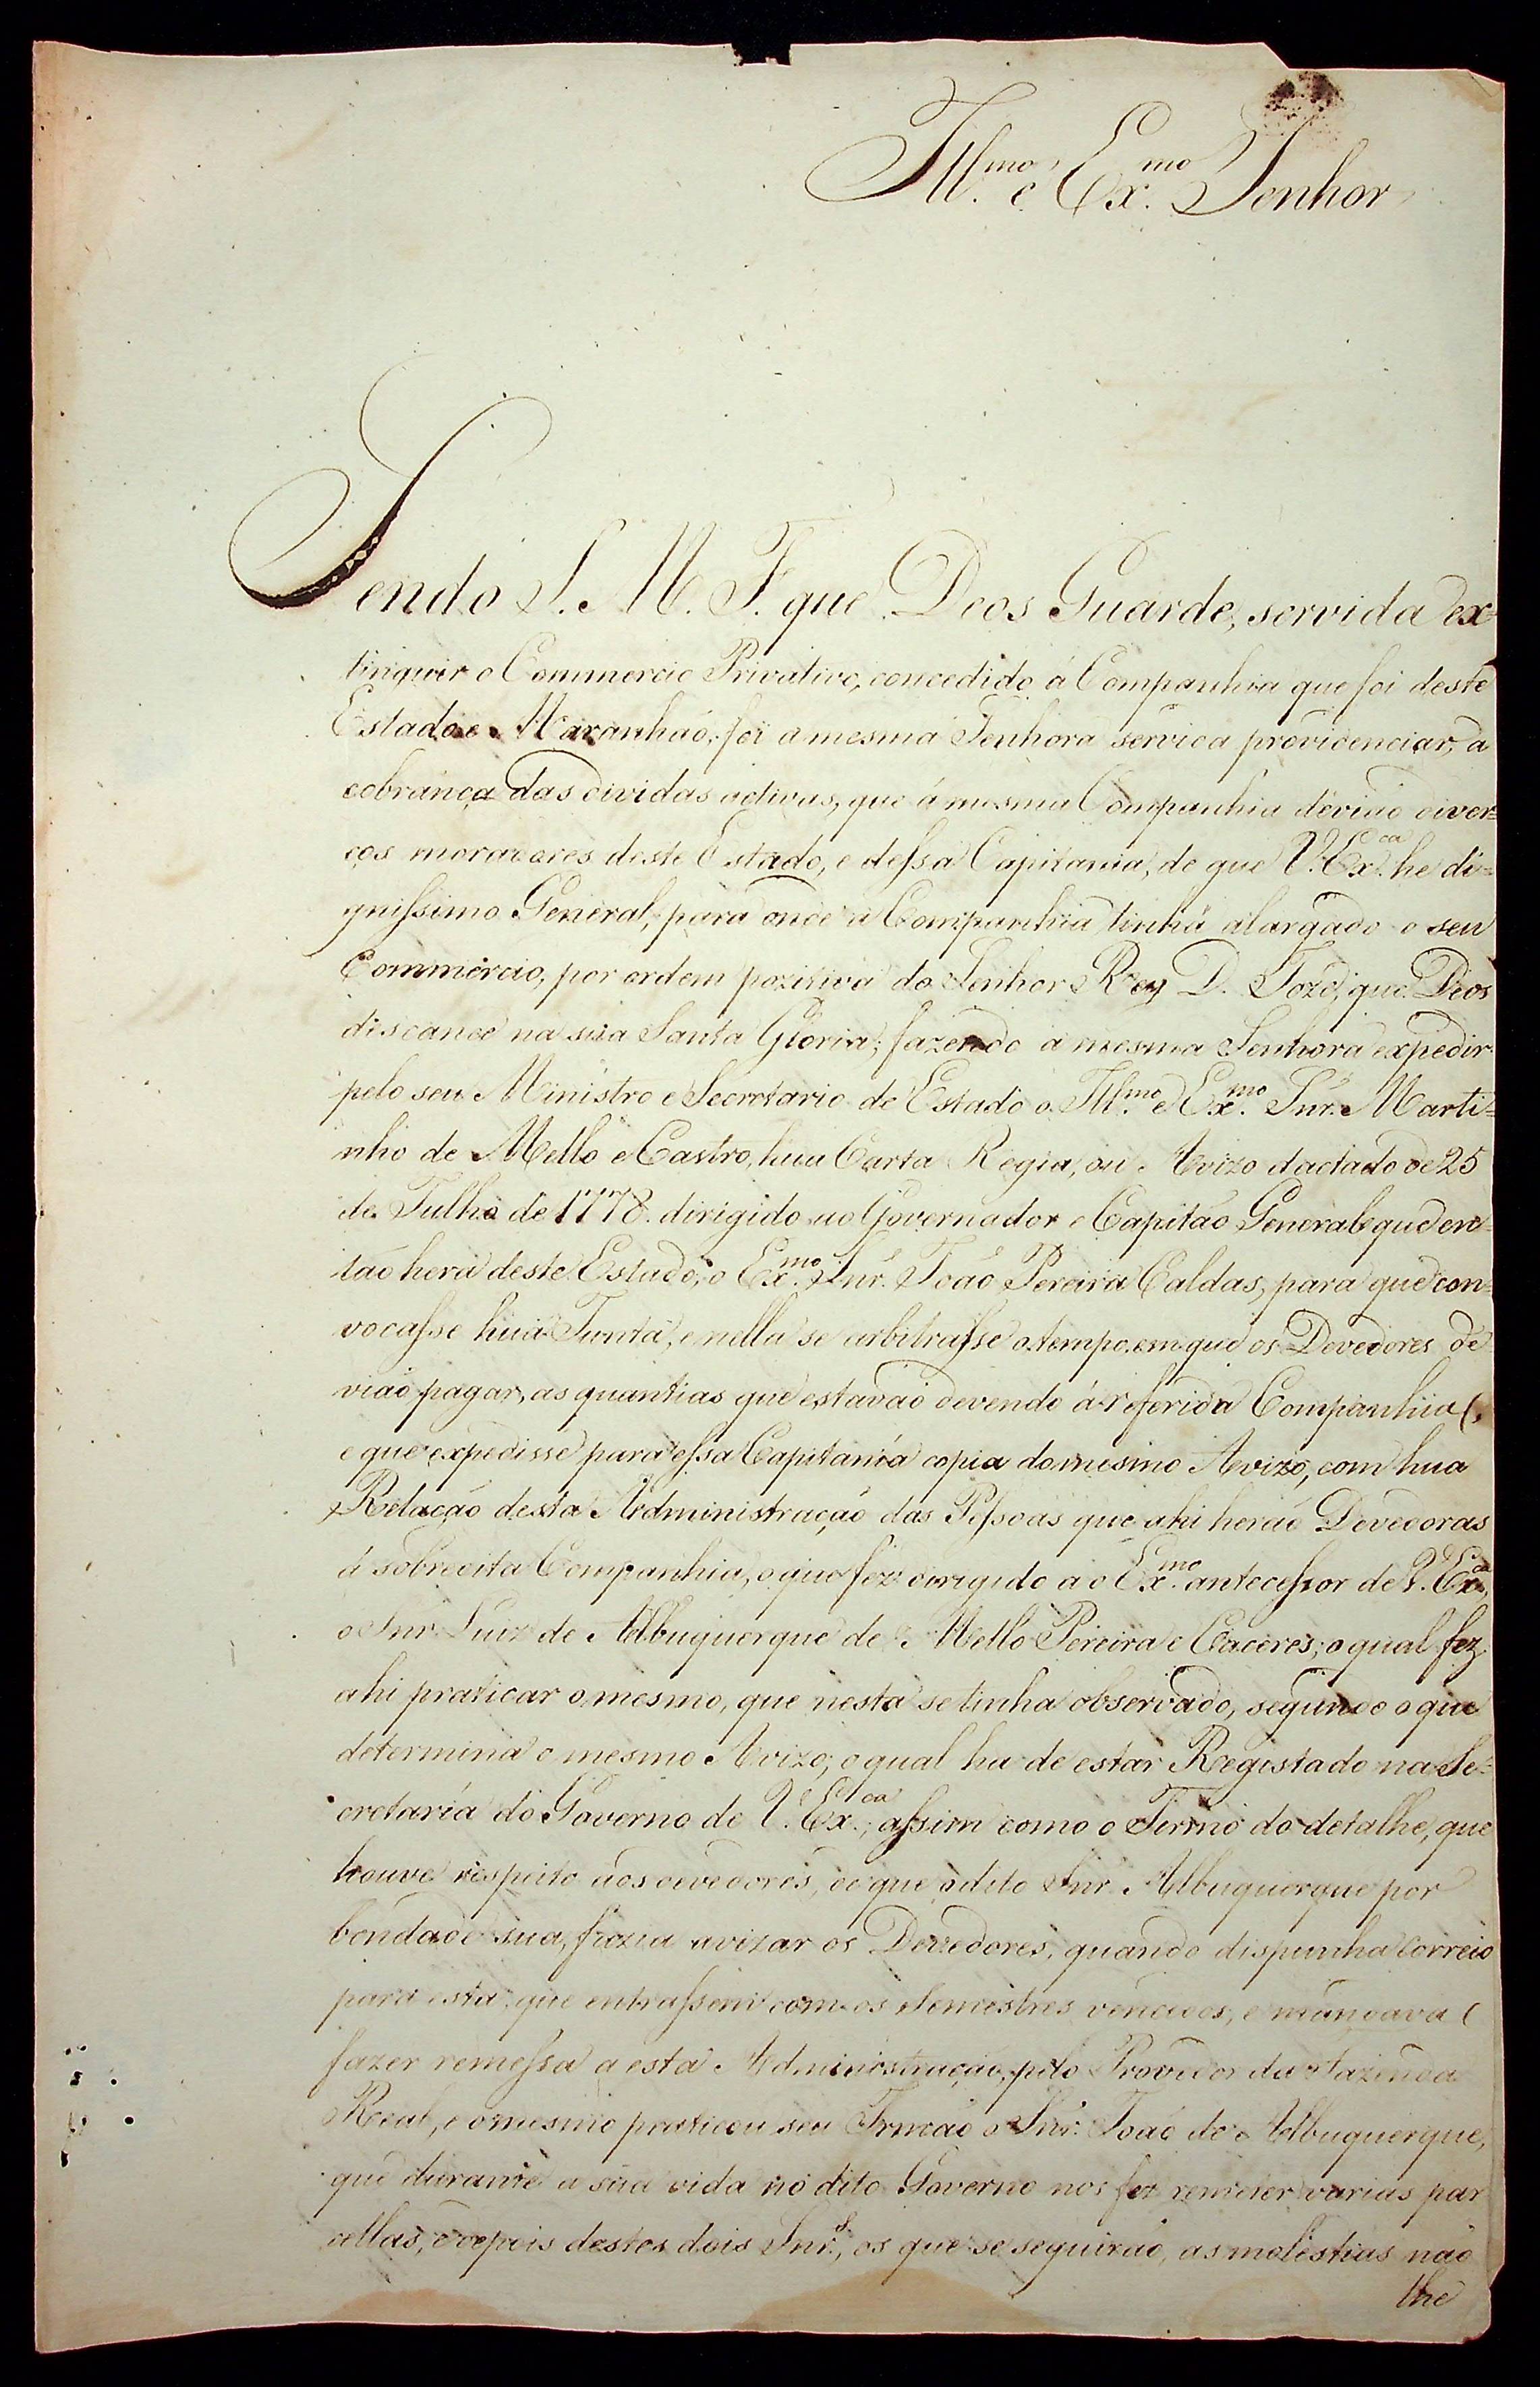 Ill.mo e Ex.mo Senhor
Sendo S. M. F. que Deos Guarde, servida ex=
tinguir o Commercio Privativo, concedido á Companhia que foi deste
Estado e Maranhaõ, foi a mesma Senhora servida providenciar, a
cobrança das dividas activas, que á mesma Companhia deviaõ diver=
ços moradores deste Estado, e dessa Capitania, de que V. Ex.ca he di=
gnissimo General, para onde a Companhia tinha alargado o seu
Commercio, por ordem pozitiva do Senhor Rey D. Jozé, que Deos
discance na sua Santa Gloria; fazendo a mesma Senhora expedir
pelo seu Ministro e Secretario de Estado o Ill.mo e Ex.mo Snr. Marti=
nho de Mello e Castro, hua Carta Regia, ou Avizo dactado de 25
de Julho de 1778. dirigido ao Governador e Capitaõ General que en=
taõ hera deste Estado, o Ex.mo Snr. Joaõ Pereira Caldas, para que con=
vocasse hua Junta, e nella se arbitrasse o tempo em que os Devedores de
viaõ pagar, as quantias que estavaõ devendo á referida Companhia,
e que expedisse para essa Capitania copia do mesmo Avizo, com hua
Relação desta Administração das Pessoas que ahi heraõ Devedoras
á sobredita Companhia, o que fez dirigido ao Ex.mo antecessor de V. Ex.ca,
o Snr. Luiz de Albuquerque de Mello Pereira e Caceres; o qual fez
ahi praticar o mesmo, que nesta se tinha observado, segundo o que
determina o mesmo Avizo; o qual ha de estar Registado na Se=
cretaria do Governo de V. Ex.ca; assim como o Termo do detalhe, que
houve respeito aos devedores, do que o dito Snr. Albuquerque por
bondade sua, fazia avizar os Devedores, quando dispunha Correio
para esta, que entrassem com os Semestres vencidos, e mandava
fazer remessa a esta Administração, pelo Provedor da Fazenda
Real, e o mesmo praticou seu Irmaõ o Snr. Joaõ de Albuquerque,
que durante a sua vida no dito Governo nos fez remeter varias par
cellas, e depois destes dois Snr.s, os que se seguiraõ, as molestias naõ
lhe